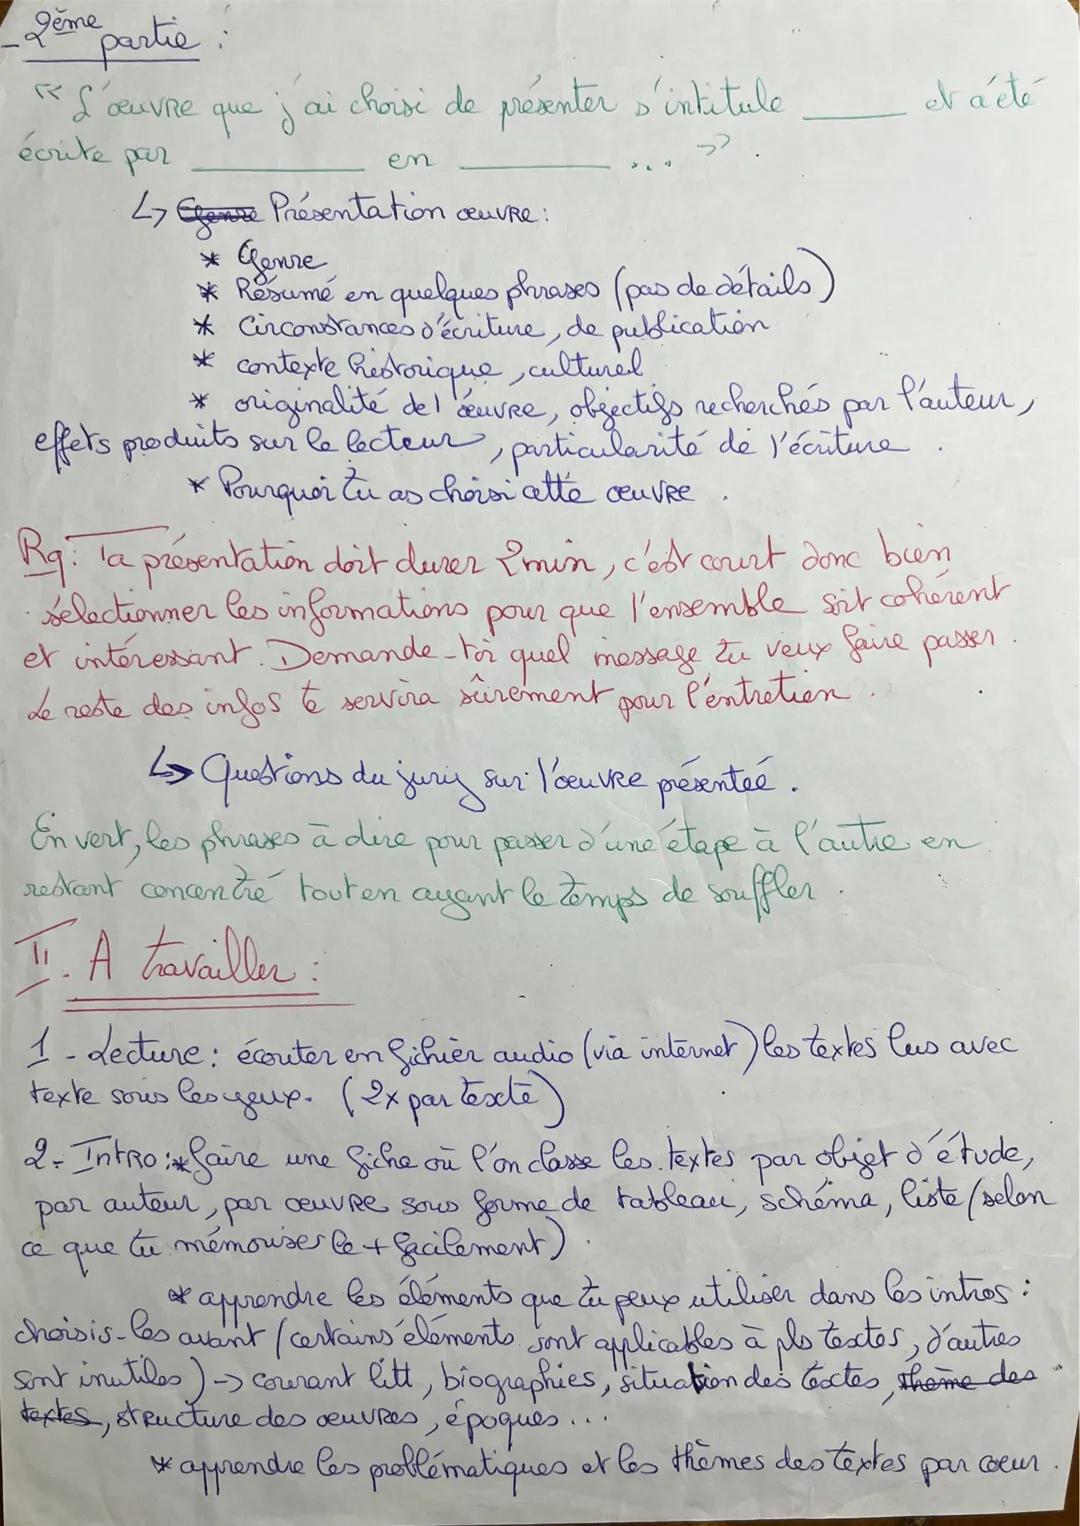 - 2ème partie :
" L'œuvre que j'ai choisi de présenter s'intitule ______ et a été
écrite par ______ en ______ ... " .
↳ Genre Présentation œuvre :
* Genre
* Résumé en quelques phrases (pas de détails)
* Circonstances d'écriture, de publication
* contexte historique, culturel
* originalité de l'œuvre, objectifs recherchés par l'auteur,
effets produits sur le lecteur, particularité de l'écriture .
* Pourquoi tu as choisi cette œuvre .
Rq : Ta présentation doit durer 2min, c'est court donc bien
sélectionner les informations pour que l'ensemble soit cohérent
et intéressant. Demande-toi quel message tu veux faire passer .
Le reste des infos te servira sûrement pour l'entretien .
↳ Questions du jury sur l'œuvre présentée .
En vert, les phrases à dire pour passer d'une étape à l'autre en
restant concentré tout en ayant le temps de souffler .
II. A travailler :
1 - Lecture : écouter en fichier audio (via internet) les textes lus avec
texte sous les yeux. (2x par texte)
2 - Intro : * faire une fiche où l'on classe les textes par objet d'étude,
par auteur, par œuvre sous forme de tableau, schéma, liste (selon
ce que tu mémorises le + facilement) .
* apprendre les éléments que tu peux utiliser dans les intros :
choisis-les avant (certains éléments sont applicables à pls textes, d'autres
sont inutiles) → courant litt, biographies, situation des textes, thème des
textes, structure des œuvres, époques ...
* apprendre les problématiques et les thèmes des textes par cœur .